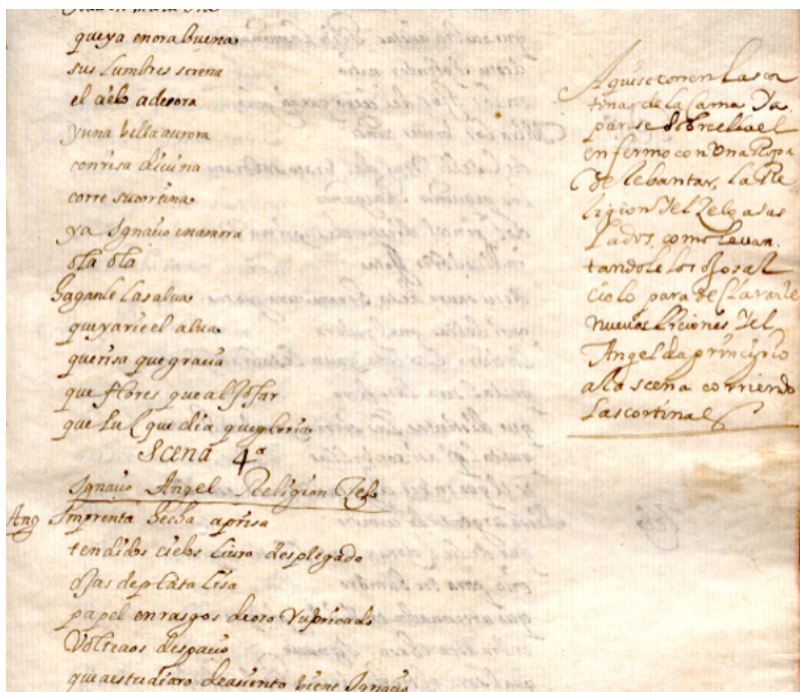 que ya en ora buena
sus lumbres serena
el cielo adesora
y una bella aurora
con risa divina
corre su cortina
ya Ignacio enamora
ola ola
haganle la salua
que ya rie el alua
que risa que gracia
que flores que aljofar
que luz que dia que gloria
Scena 4ª
Ignacio Angel Religion Zelo
Ang Imprenta hecha aprisa
tendidos cielos livro desplegado
ojas de plata lisa
papel en rasgos de oro rubricado
Volteaos despacio
que a estudiaros de asiento viene Ignacio
Aqui se corren las cor
tinas de la Cama Ya
parese sobre ella el
enfermo con Una Ropa
de lebantar, la Re
ligion Yel Zelo a sus
lados, como levan
tandole los ojos al
cielo para
nuevas liciones Yel
Angel da principio
a la scena corriendo
las cortinas